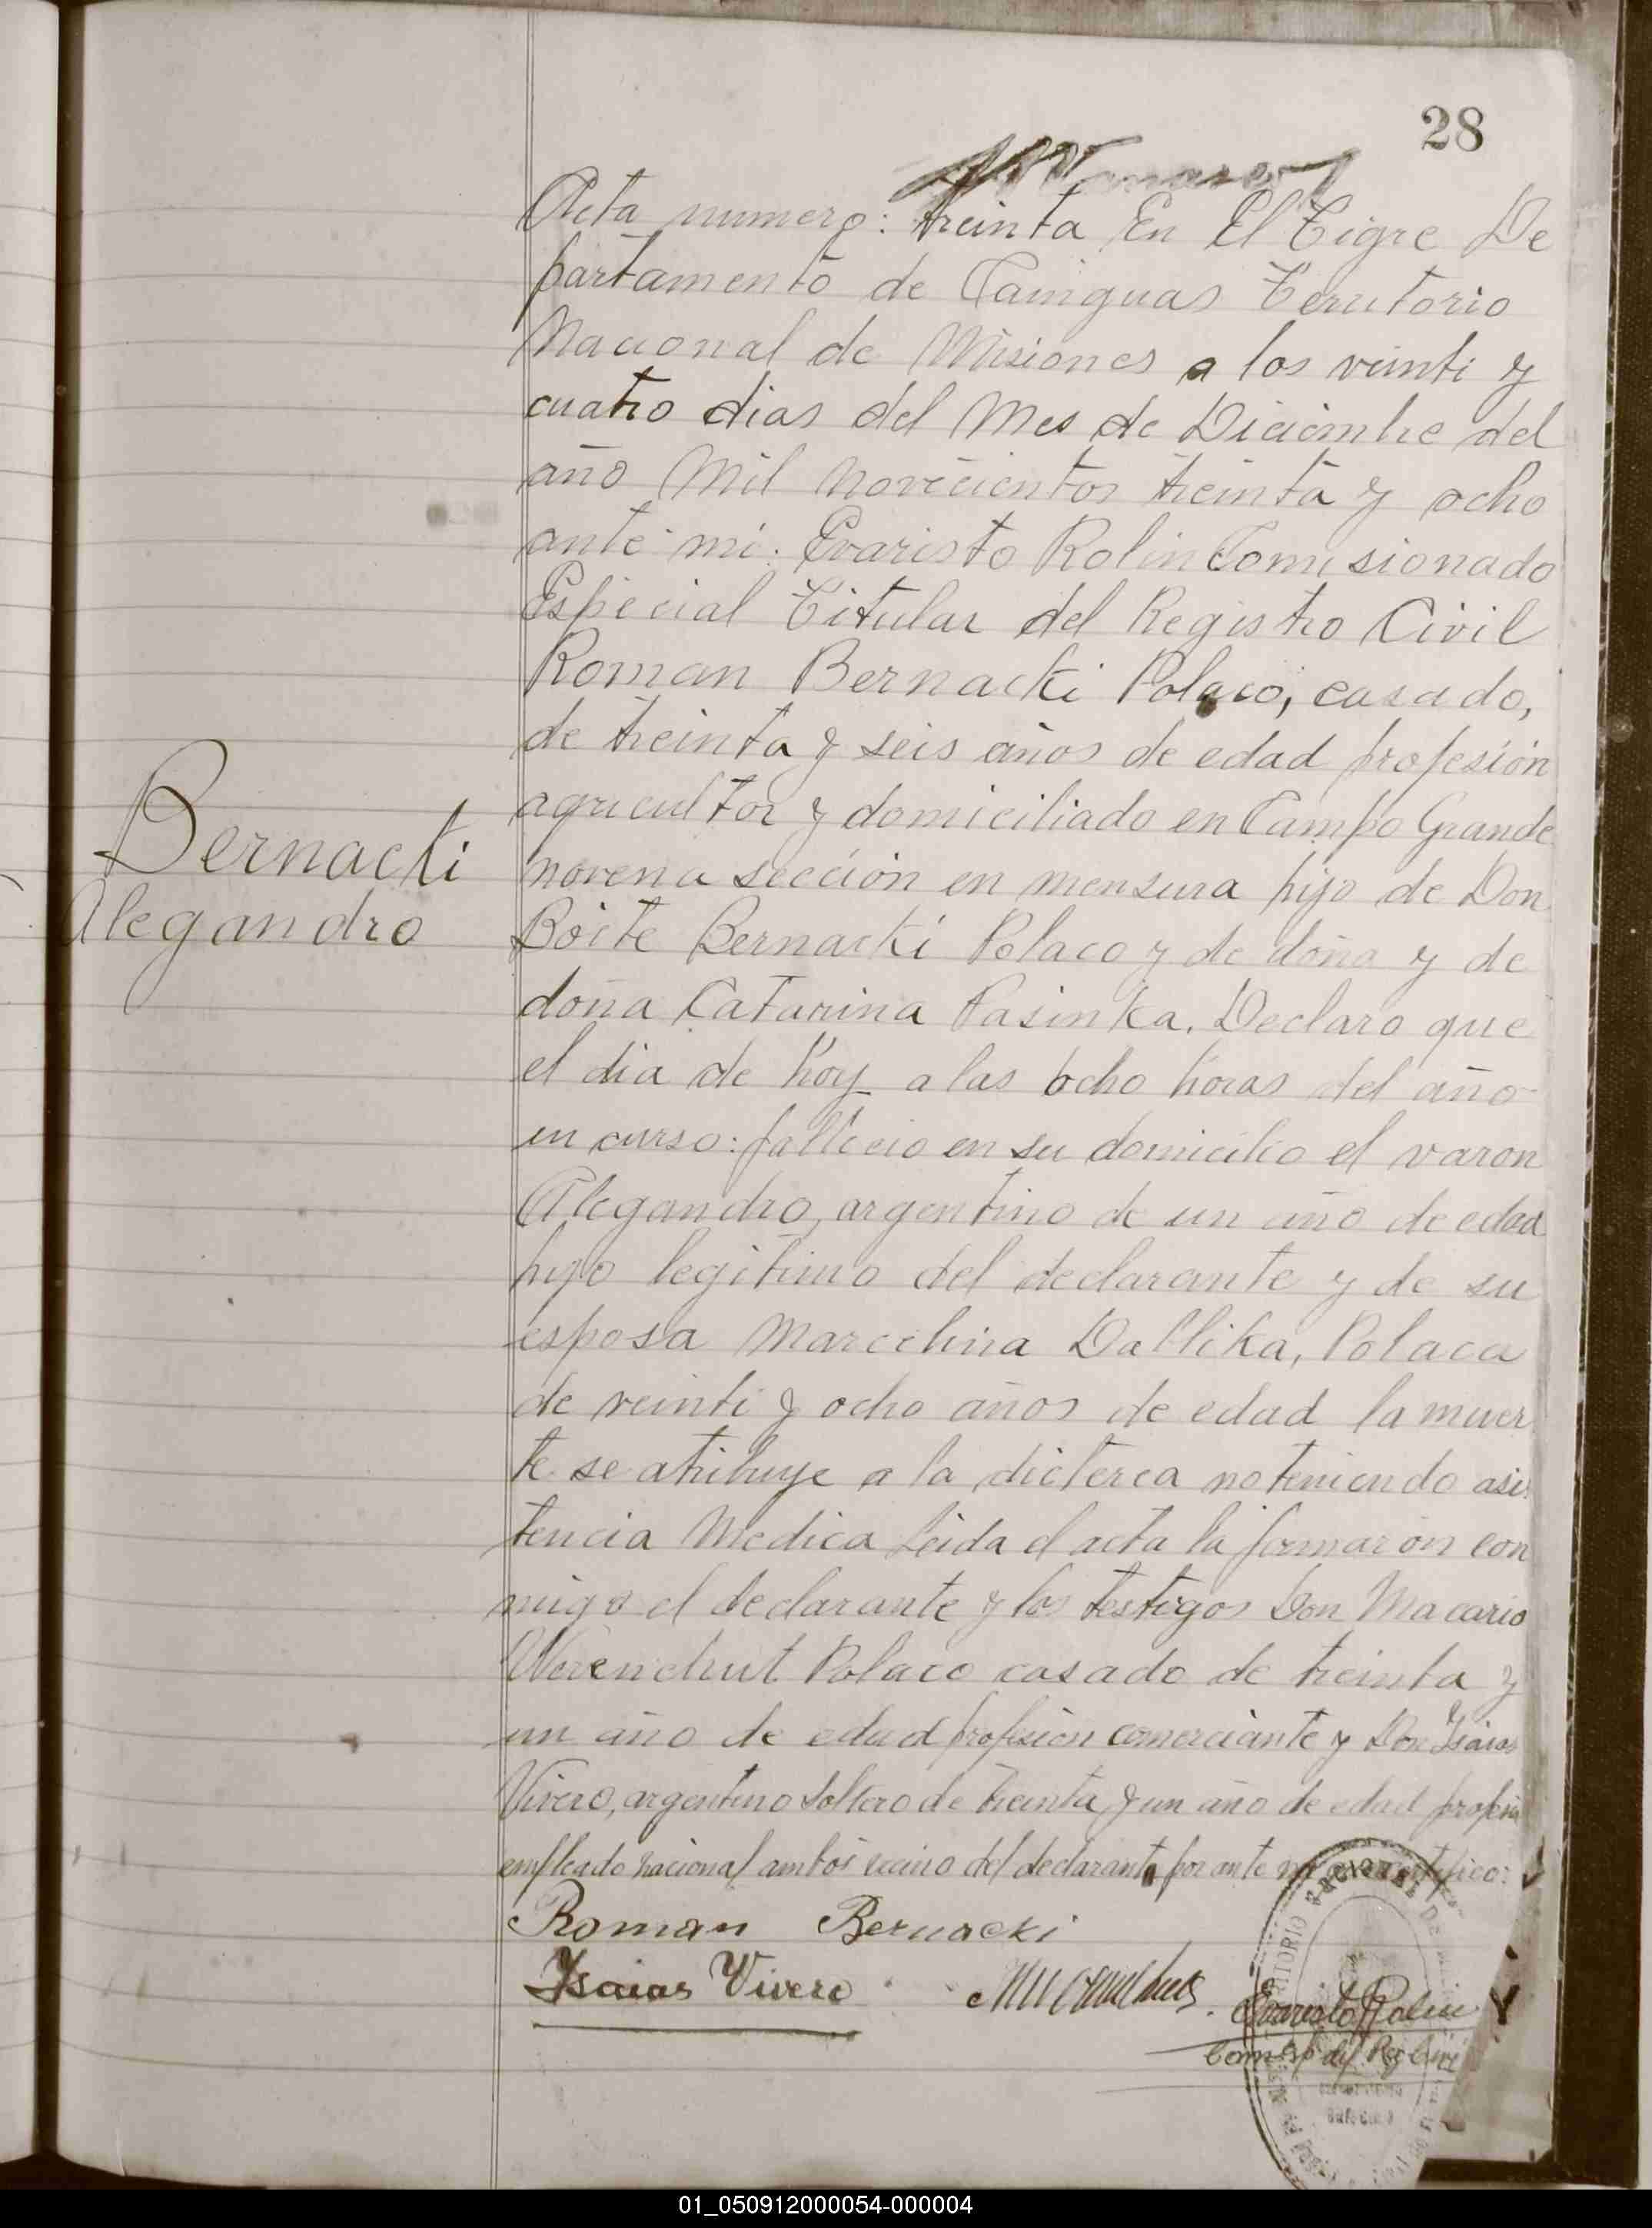 28
Acta numero: treinta En El Tigre De
partamento de Cainguas Territorio
Nacional de Misiones a los veinti y
cuatro dias del Mes de Diciembre del
año Mil Novecientos treinta y ocho
ante mi. Evaristo Rolin Comisionado
Especial Titular del Registro Civil
Roman Bernacki Polaco, casado,
de treinta y seis años de edad profesión
agricultor y domiciliado en Campo Grande
Bernacki
Alegandro
novena sección en mensura hijo de Don
Boite Bernacki Polaco y de doña y de
doña Catarina Pasinka. Declaro que
el dia de hoy a las ocho horas del año
en curso: fallecio en su domicilio el varon
Alegandro, argentino de un año de edad
hijo legitimo del declarante y de su
esposa Marcelina Dallika, Polaca
de veinti y ocho años de edad la muer
te se atribuye a la dicterea no teniendo asis
tencia Medica Leida el acta la formarón con
migo el declarante y los testigos Don Macario
Werenchut Polaco casado de treinta y
un año de edad profesion comerciante y Don Isaias
Vivero, argentino soltero de treinta y un año de edad profesion
empleado nacional ambos vecino del declarante por ante mi que certifico:
Roman Bernacki
Isaias Vivero
Evaristo Rolin
01_050912000054-000004